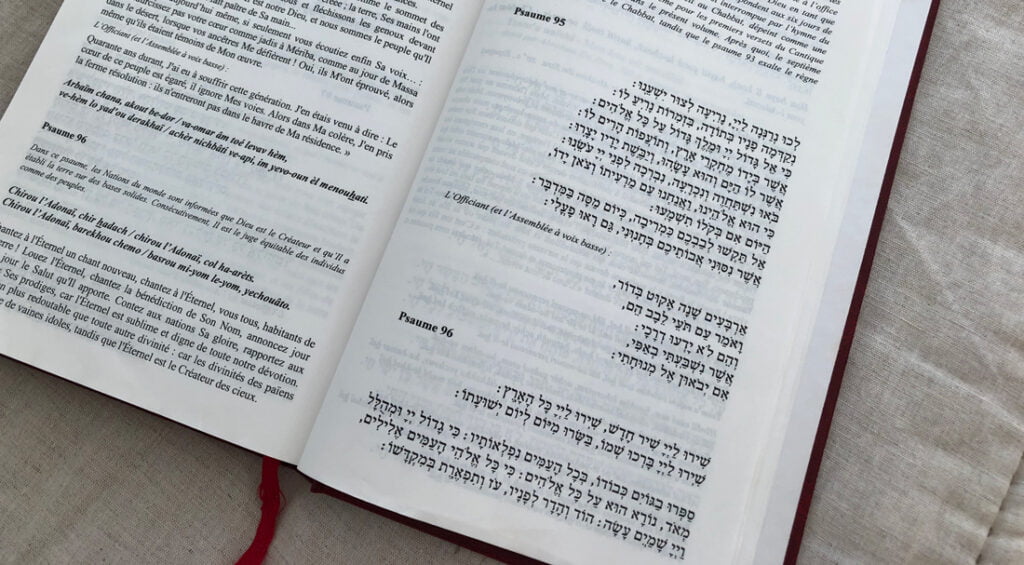 créée ; la terre, Ses mains l'ont
et fléchissons les genoux devant
est notre Dieu, et nous sommes le peuple qu'Il
fait paître de Sa main...
aujourd'hui même, si seulement vous écoutiez enfin Sa voix... :
durcissez pas votre cœur comme jadis à Mériba, comme au jour de Massa
dans le désert, lorsque vos ancêtres Me défièrent ! Oui, ils M'ont éprouvé, alors
même qu'ils étaient témoins de Mon œuvre.
L'Officiant (et l'Assemblée à voix basse) :
Quarante ans durant, J'ai eu à souffrir cette génération. J'en étais venu à dire : Le
cœur de ce peuple est égaré, il ignore Mes voies. Alors dans Ma colère, J'en pris
la ferme résolution : ils n'entreront pas dans le havre de Ma résidence. »
Arbaïm chana, akout be-dor / va-omar âm toé levav hèm,
ve-hèm lo yad'ou derakhaï / achèr nichbâti ve-api, im yevo-oun èl menouhati.
Psaume 96
Dans ce psaume, les Nations du monde sont informées que Dieu est le Créateur et qu'Il a
établi la terre sur des bases solides. Consécutivement, Il est le juge équitable des individus
comme des peuples.
Chirou l'Adonaï, chir hadach / chirou l'Adonaï, col ha-arèts.
Chirou l'Adonaï, barekhou chemo / basrou mi-yom le-yom, yechouâto.
chantez à l'Éternel un chant nouveau, chantez à l'Éternel, vous tous, habitants de
terre ! Louez l'Éternel, chantez à la bénédiction de Son Nom, annoncez jour
jour le Salut qu'Il apporte. Contez aux nations Sa gloire, rapportez aux
Ses prodiges, car l'Éternel est sublime et digne de toute notre dévotion.
plus redoutable que toute autre divinité ; car les divinités des païens
de vaines idoles, tandis que l'Éternel est le Créateur des cieux.
l'hymne de
le Chabbat, interrompue par le Cantique
Chabbat, tandis que le psaume 93 exalte le règne
Psaume 95
לְכוּ נְרַנְּנָה לַיְיָ, נָרִיעָה לְצוּר יִשְׁעֵנוּ:
נְקַדְּמָה פָנָיו בְּתוֹדָה, בִּזְמִרוֹת נָרִיעַ לוֹ:
כִּי אֵל גָּדוֹל יְיָ, וּמֶלֶךְ גָּדוֹל עַל כָּל אֱלֹהִים:
אֲשֶׁר בְּיָדוֹ מֶחְקְרֵי אָרֶץ, וְתוֹעֲפוֹת הָרִים לוֹ:
אֲשֶׁר לוֹ הַיָּם וְהוּא עָשָׂהוּ, וְיַבֶּשֶׁת יָדָיו יָצָרוּ:
בֹּאוּ נִשְׁתַּחֲוֶה וְנִכְרָעָה, נִבְרְכָה לִפְנֵי יְיָ עֹשֵׂנוּ:
כִּי הוּא אֱלֹהֵינוּ, וַאֲנַחְנוּ עַם מַרְעִיתוֹ וְצֹאן יָדוֹ,
הַיּוֹם אִם בְּקֹלוֹ תִשְׁמָעוּ:
אַל תַּקְשׁוּ לְבַבְכֶם כִּמְרִיבָה, כְּיוֹם מַסָּה בַּמִּדְבָּר:
אֲשֶׁר נִסּוּנִי אֲבוֹתֵיכֶם בְּחָנוּנִי, גַּם רָאוּ פָעֳלִי:
L'Officiant (et l'Assemblée à voix basse) :
אַרְבָּעִים שָׁנָה אָקוּט בְּדוֹר,
וָאֹמַר עַם תֹּעֵי לֵבָב הֵם,
וְהֵם לֹא יָדְעוּ דְרָכָי:
אֲשֶׁר נִשְׁבַּעְתִּי בְאַפִּי,
אִם יְבֹאוּן אֶל מְנוּחָתִי:
Psaume 96
שִׁירוּ לַיְיָ שִׁיר חָדָשׁ, שִׁירוּ לַיְיָ כָּל הָאָרֶץ:
שִׁירוּ לַיְיָ בָּרְכוּ שְׁמוֹ, בַּשְּׂרוּ מִיּוֹם לְיוֹם יְשׁוּעָתוֹ:
סַפְּרוּ בַגּוֹיִם כְּבוֹדוֹ, בְּכָל הָעַמִּים נִפְלְאוֹתָיו: כִּי גָדוֹל יְיָ וּמְהֻלָּל
מְאֹד, נוֹרָא הוּא עַל כָּל אֱלֹהִים: כִּי כָּל אֱלֹהֵי הָעַמִּים אֱלִילִים,
וַיְיָ שָׁמַיִם עָשָׂה: הוֹד וְהָדָר לְפָנָיו, עֹז וְתִפְאֶרֶת בְּמִקְדָּשׁוֹ: